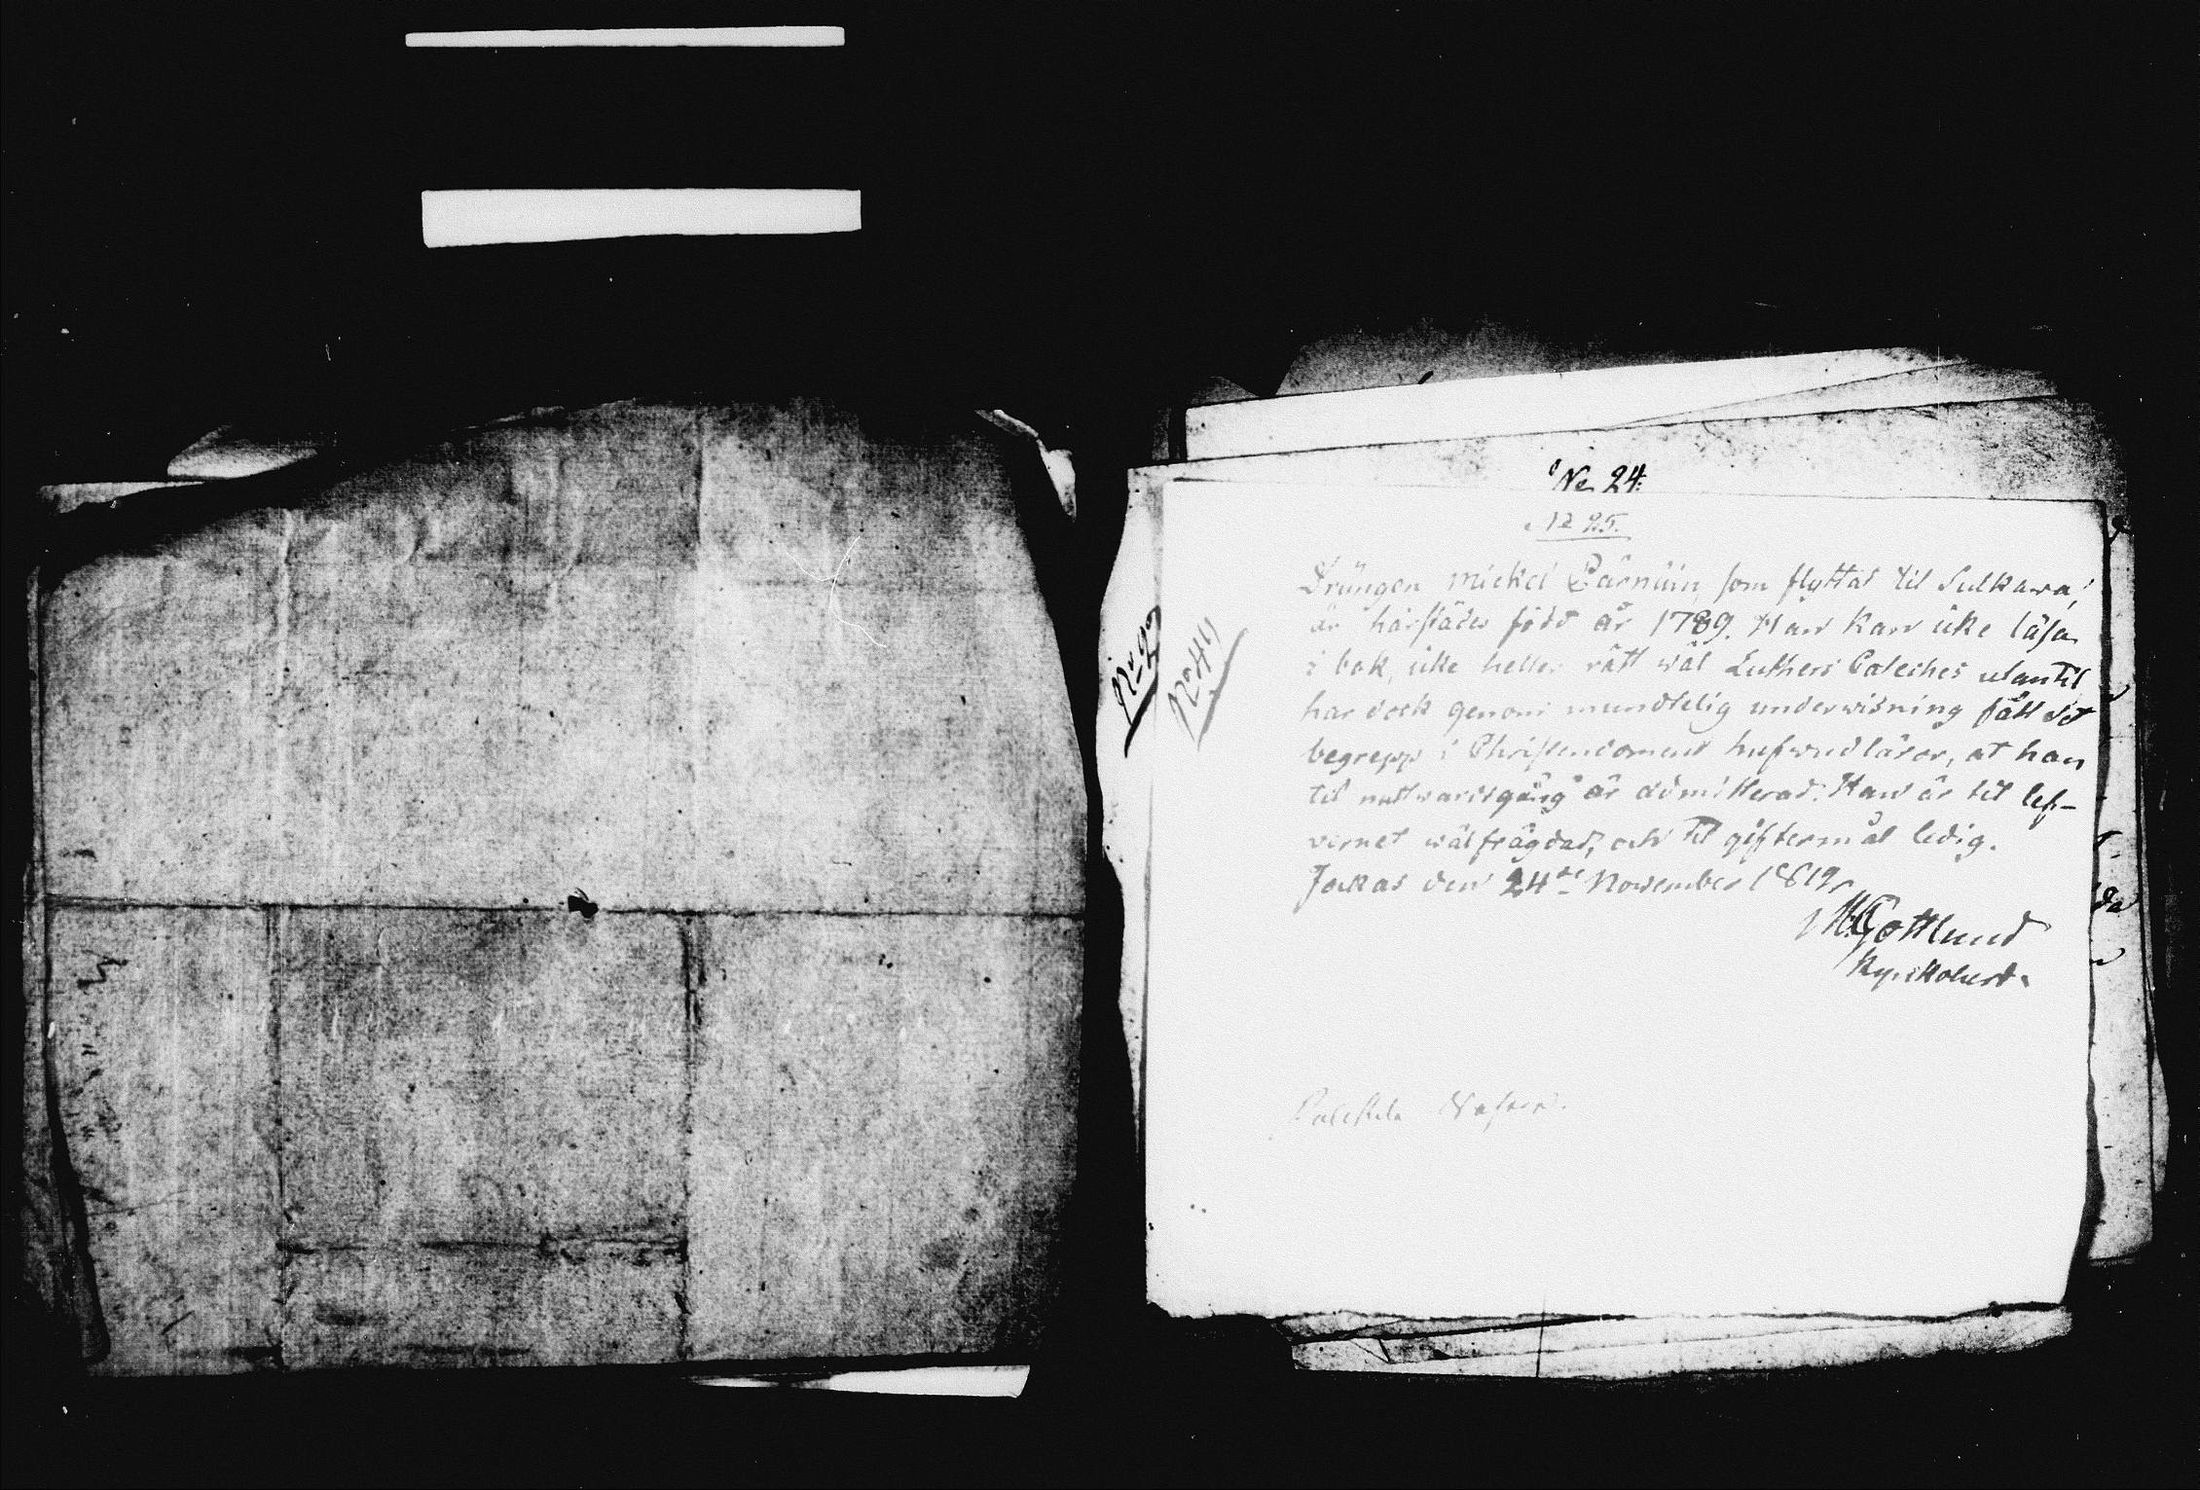 No 24.
No 25.
Drängen Mickel Pärnäin, som flyttat til Sulkava,
är härstädes född år 1789. Han kan icke läsa
i bok, icke heller rätt wäl Lutheri Cateches utantil
har dock genom mundtelig underwisning fått det
begrepp i Christendomens hufwudläror, at han
til nattwardsgång är admitterad. Han är til lef-
vernet wälfrägdad, och til giftermål ledig.
Jockas den 24de November 1819.
M Gottlund
Kyrckoherde.
No 44